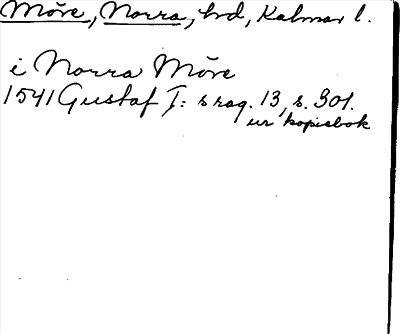 Möre, Norra, hrd, Kalmar l.
i Norra Möre
1541 Gustaf I: s reg. 13, s. 301.
ur kopiebok